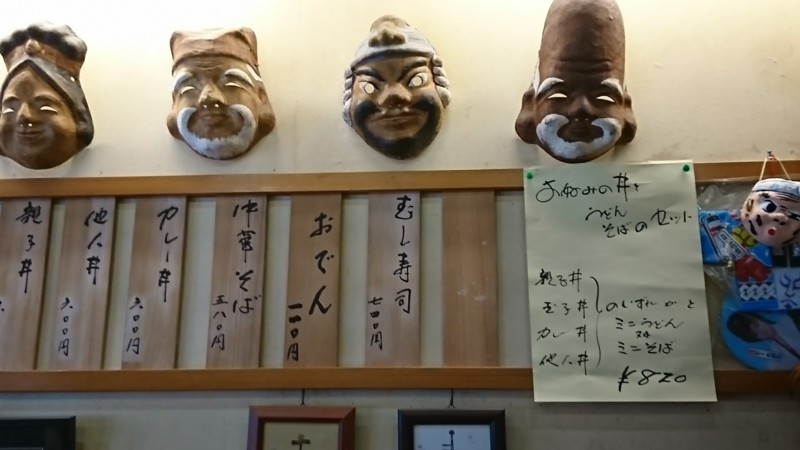 むし寿司
七四〇円
おでん
一一〇円
中華そば
五八〇円
カレー丼
六〇〇円
他人丼
六〇〇円
親子丼
お好みの丼と
うどん
そばのセット
親子丼
玉子丼
カレー丼
他人丼
のいずれかと
ミニうどん
又は
ミニそば
¥820